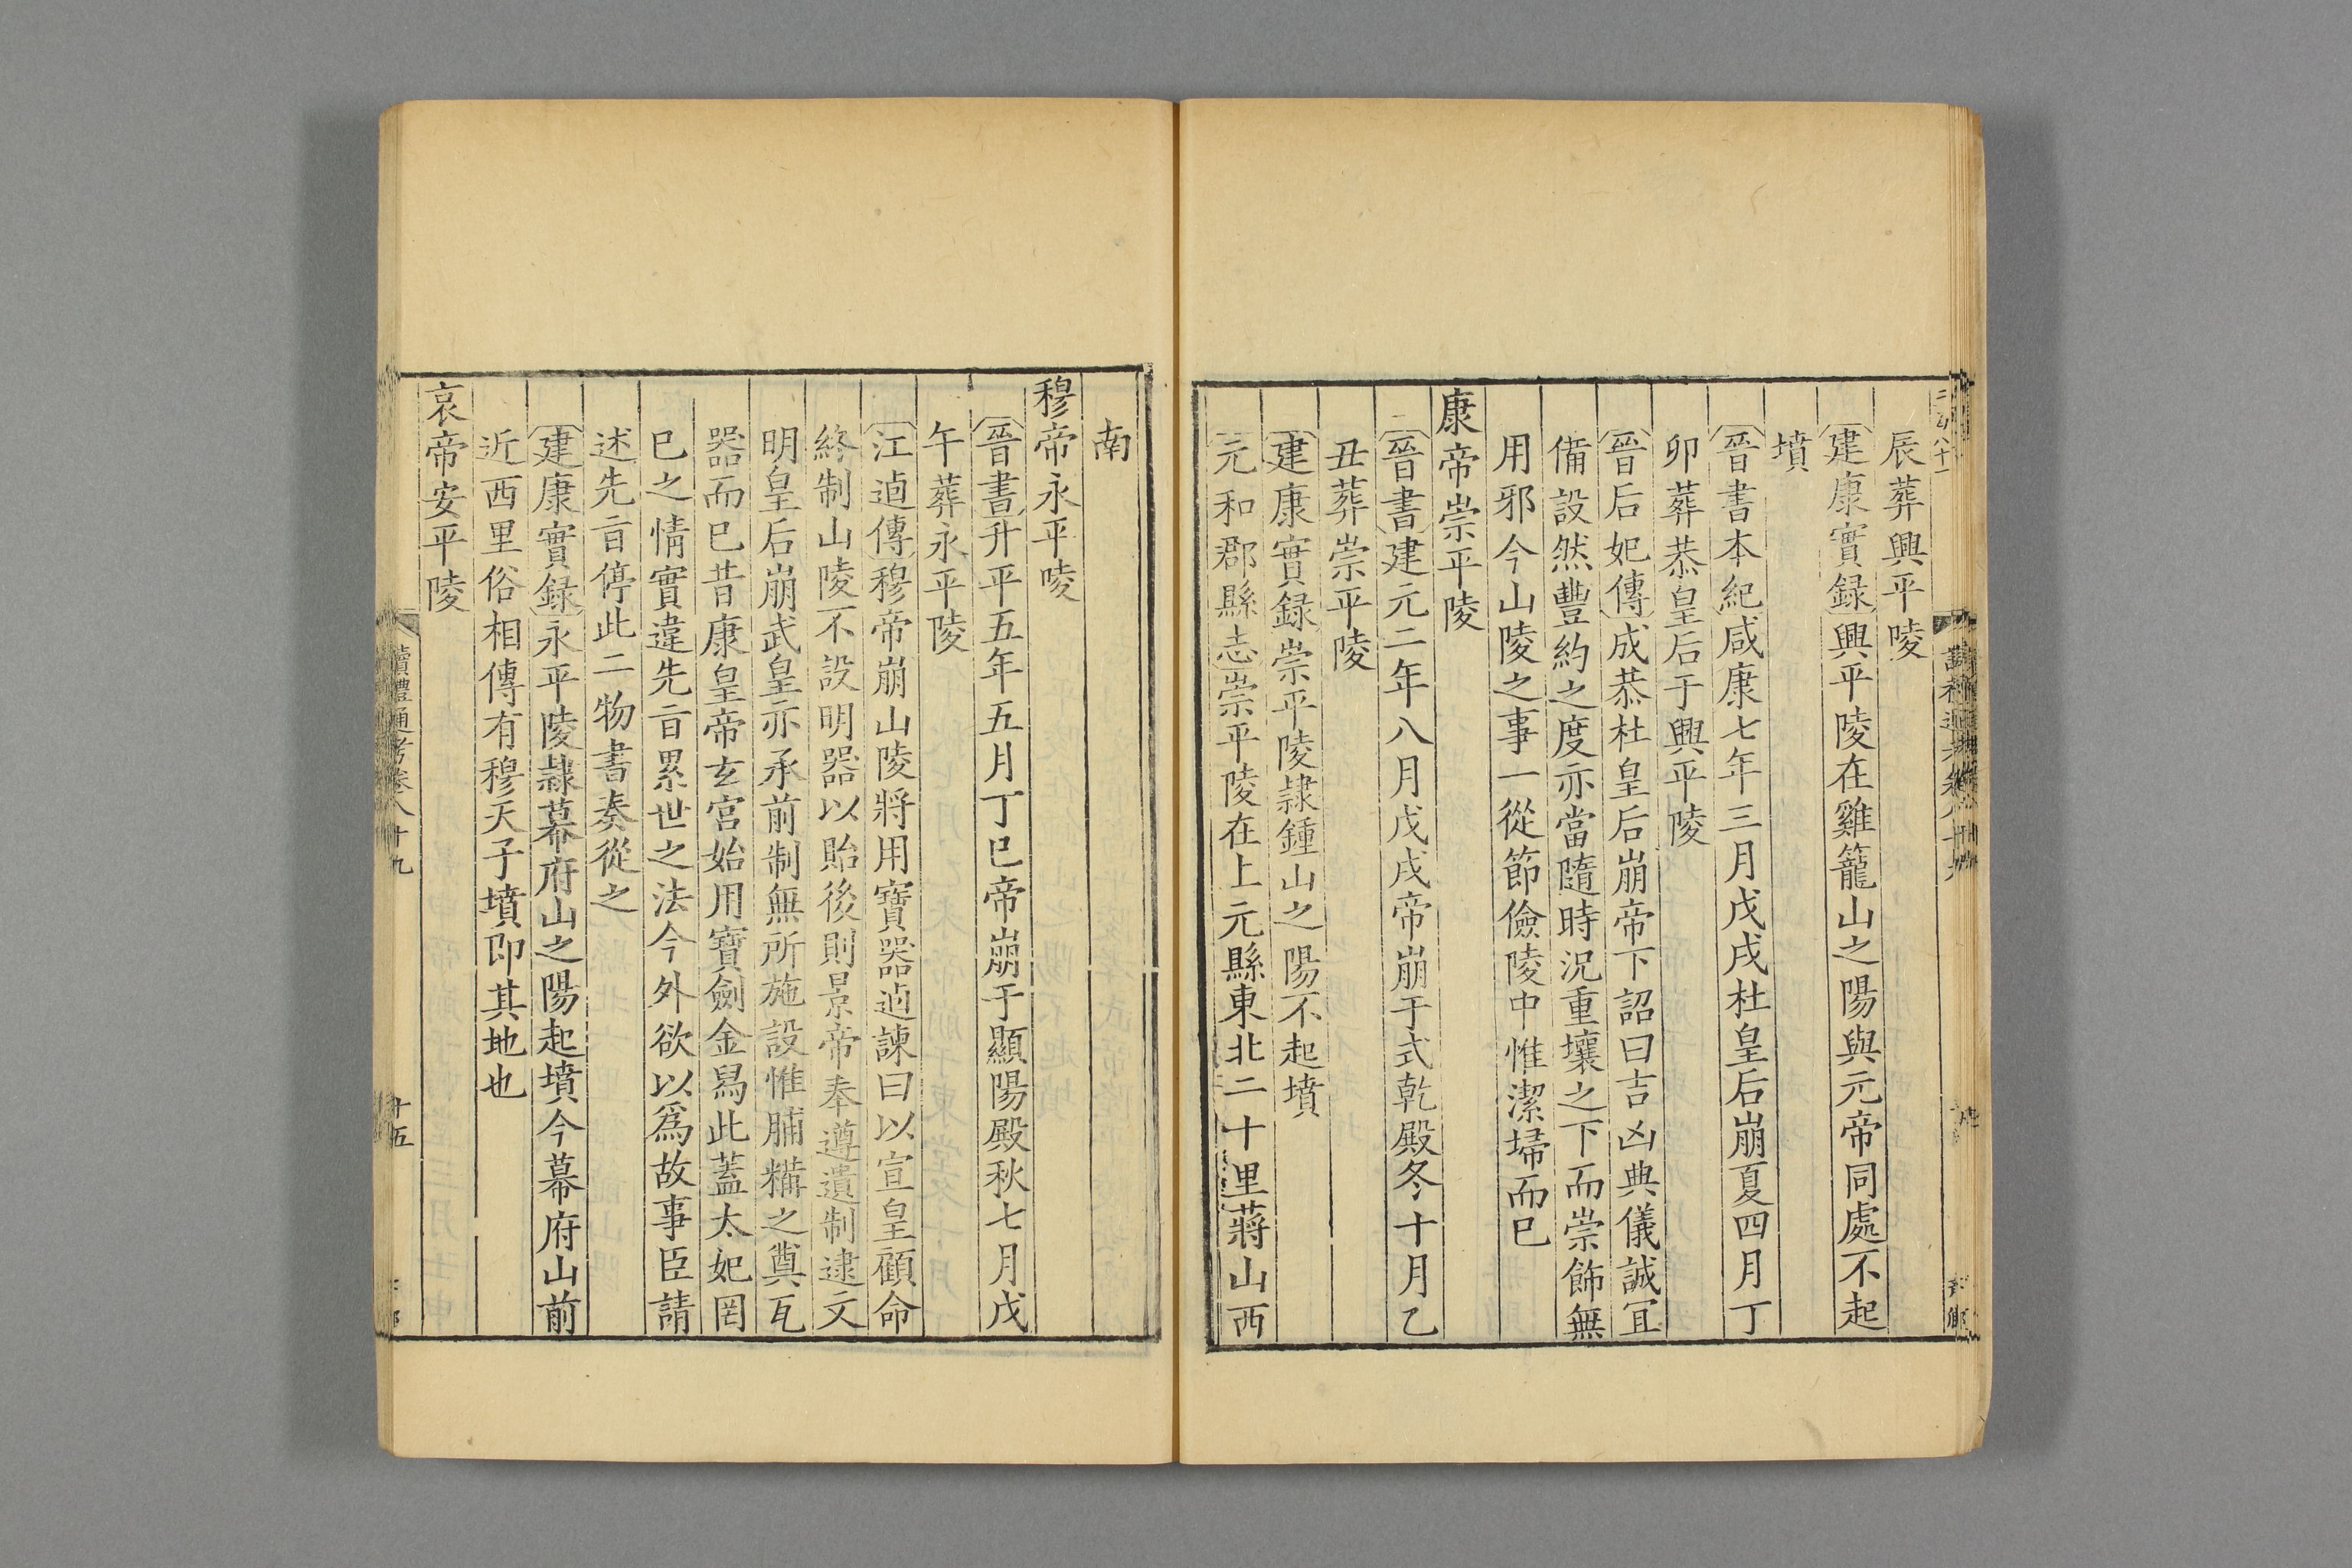 辰葬興平陵
建康實録興平陵在雞籠山之陽與元帝同處不起
墳
晉書本紀咸康七年三月戊戌杜皇后崩夏四月丁
卯葬恭皇后于興平陵
晉后妃傳成恭杜皇后崩帝下詔曰吉凶典儀誠宜
備設然豐約之度亦當隨時況重壤之下而崇飾無
用邪今山陵之事一從節儉陵中惟潔埽而已
康帝崇平陵
晉書建元二年八月戊戌帝崩于式乾殿冬十月乙
丑葬崇平陵
建康實録崇平陵隷鍾山之陽不起墳
元和郡縣志崇平陵在上元縣東北二十里蔣山西
南
穆帝永平陵
晉書升平五年五月丁巳帝崩于顯陽殿秋七月戊
午葬永平陵
江逌傳穆帝崩山陵將用寶器逌諫曰以宣皇顧命
終制山陵不設明器以貽後則景帝奉遵遺制逮文
明皇后崩武皇亦承前制無所施設惟脯糒之奠瓦
器而已昔康皇帝玄宮始用寶劍金舄此蓋太妃罔
已之情實違先㫖累世之法今外欲以爲故事臣請
述先㫖停此二物書奏從之
建康實録永平陵隷幕府山之陽起墳今幕府山前
近西里俗相傳有穆天子墳即其地也
哀帝安平陵
讀禮通考卷八十九
十五